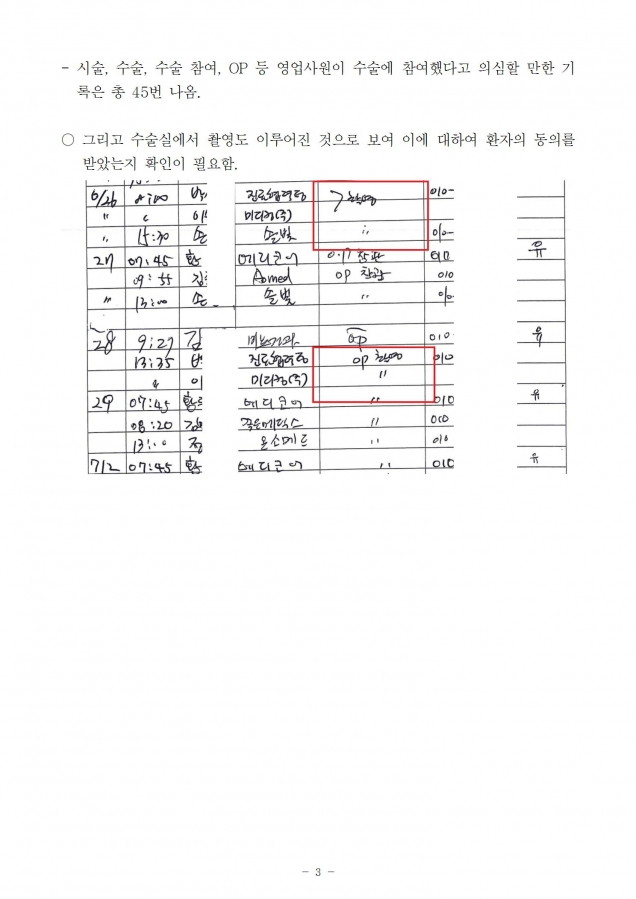 - 시술, 수술, 수술 참여, OP 등 영업사원이 수술에 참여했다고 의심할 만한 기
록은 총 45번 나옴.
○ 그리고 수술실에서 촬영도 이루어진 것으로 보여 이에 대하여 환자의 동의를
받았는지 확인이 필요함.
6/26 8:00 박 진료협력팀 > 촬영 010-
" " 이 미디컴(주)
" 15:30 손 솔빛 " 010-
27 07:45 황 메디코어 참관 010 유
09:55 김 Aomed OP 참관 010
" 13:00 손 솔빛 " 010
28 9:27 김 OP 010 유
13:35 박 진료협력팀 OP 촬영 010
" 이 미디컴(주) "
29 07:45 황 메디코어 " 010 유
08:20 김 좋은메딕스 " 010
13:00 정 온소메드 " 010
7/2 07:45 황 메디코어 " 010 유
- 3 -